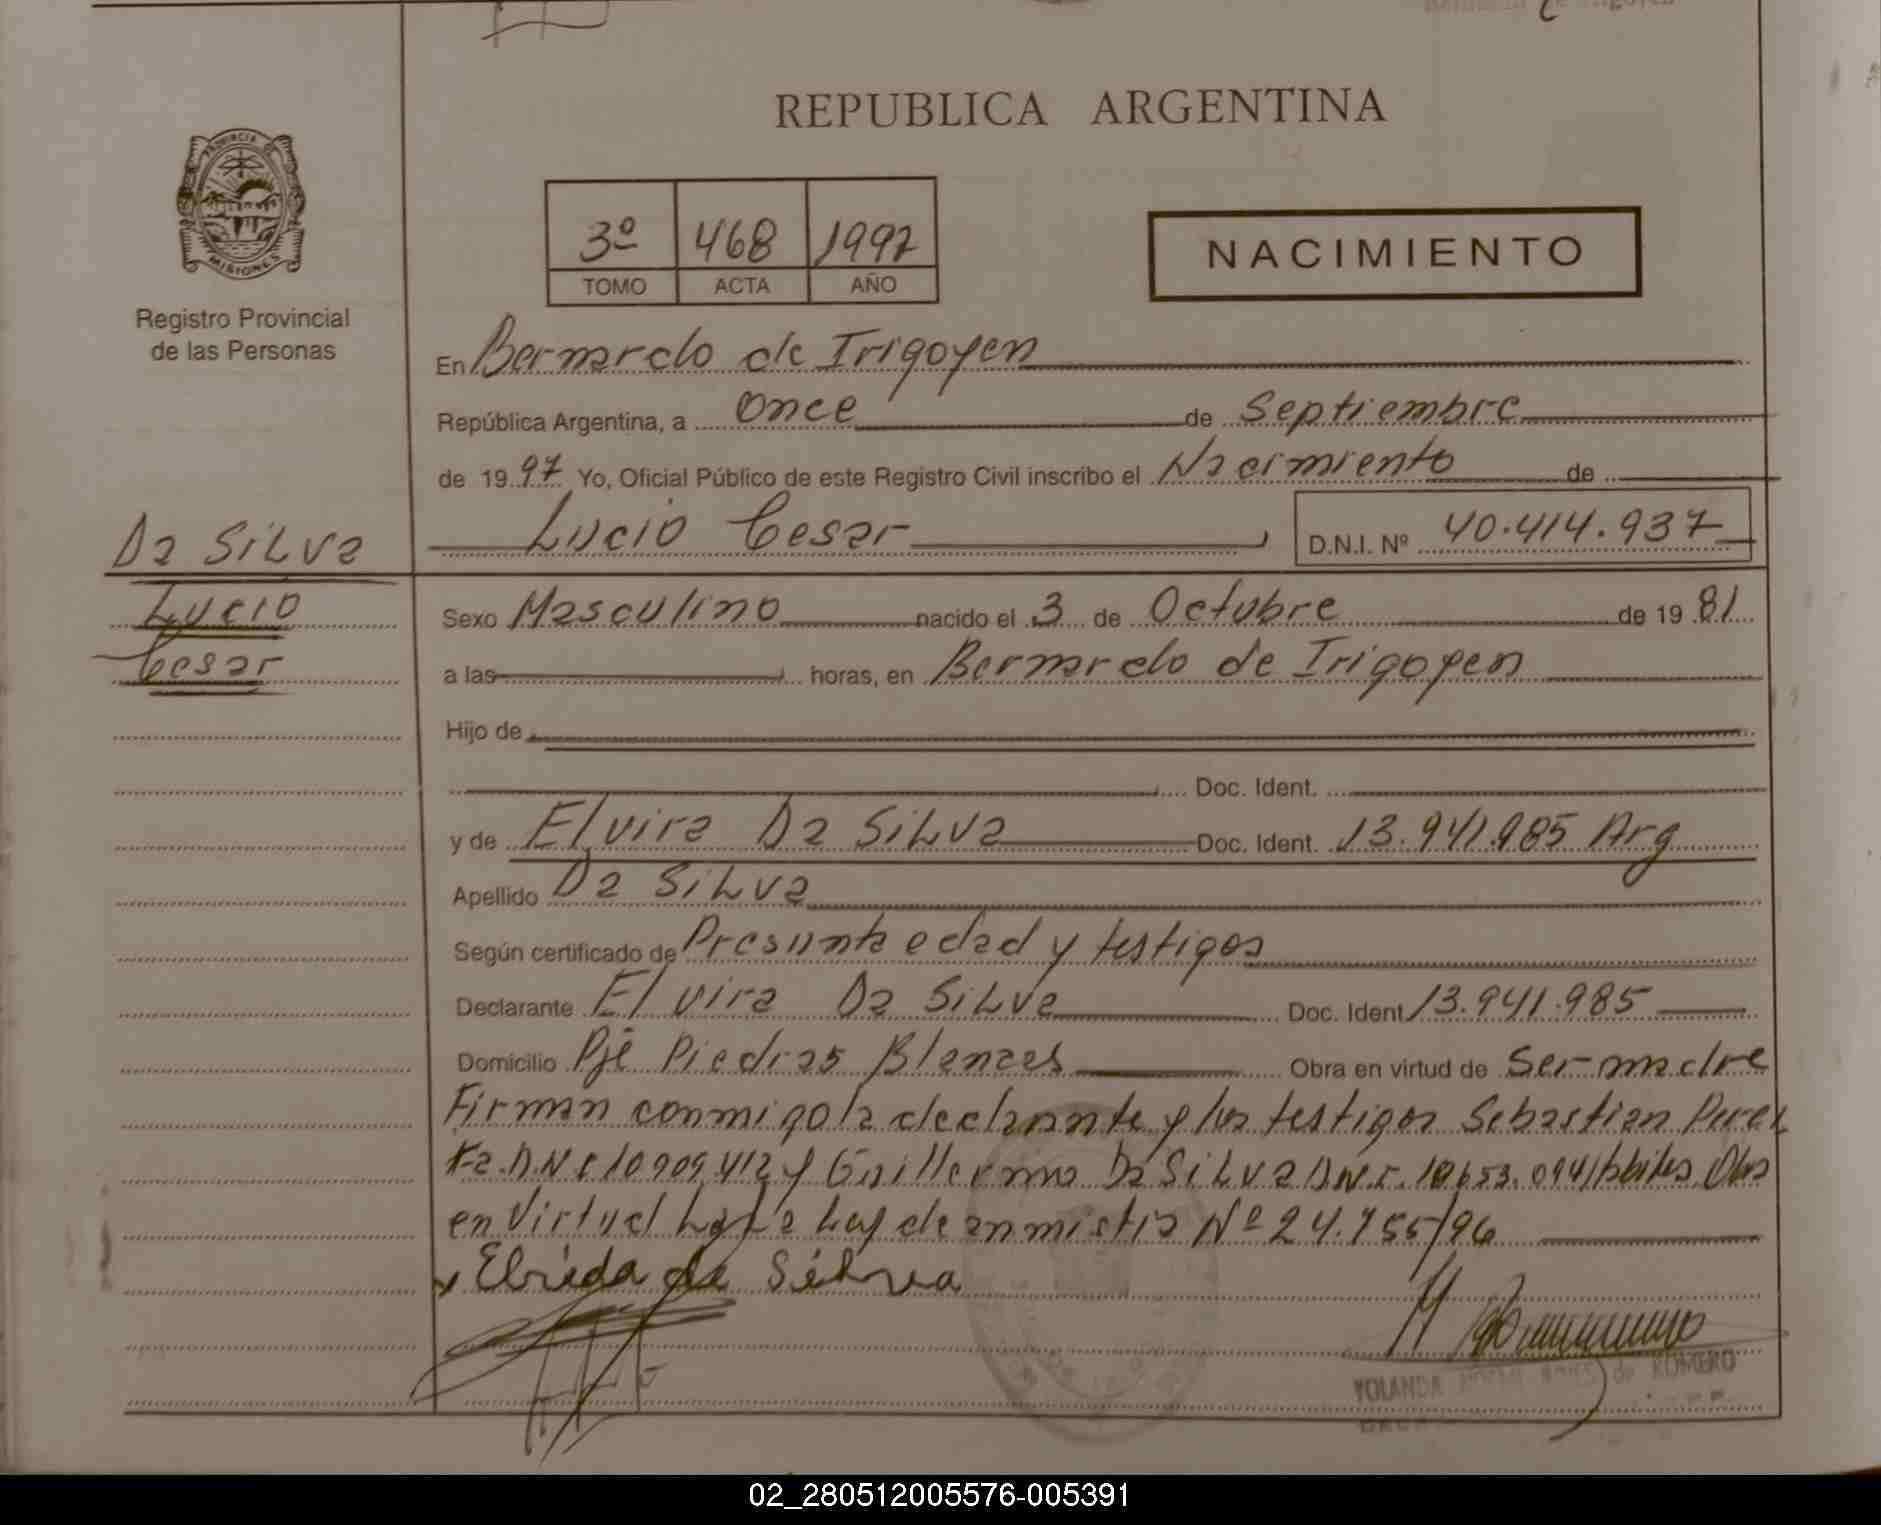 REPUBLICA ARGENTINA
PROVINCIA
MISIONES
Registro Provincial
de las Personas
3º 468 1997
TOMO ACTA AÑO
NACIMIENTO
En Bernardo de Irigoyen
República Argentina, a Once de Septiembre
de 1997 Yo, Oficial Público de este Registro Civil inscribo el Nacimiento de
Lucio Cesar D.N.I. Nº 40.414.937
Da Silva
Lucio
Cesar
Sexo Masculino nacido el 3 de Octubre de 1981
a las horas, en Bernardo de Irigoyen
Hijo de
Doc. Ident.
y de Elvira Da Silva Doc. Ident. 13.941.985 Arg
Apellido Da Silva
Según certificado de Presunta edad y testigos
Declarante Elvira Da Silva Doc. Ident 13.941.985
Domicilio Pje Piedras Blancas Obra en virtud de Ser madre
Firman conmigo la declarante y los testigos Sebastian
y Guillermo Da Silva
en Virtud de anmistia Nº 24.755/96
de Silva
YOLANDA de ROMERO
02_280512005576-005391